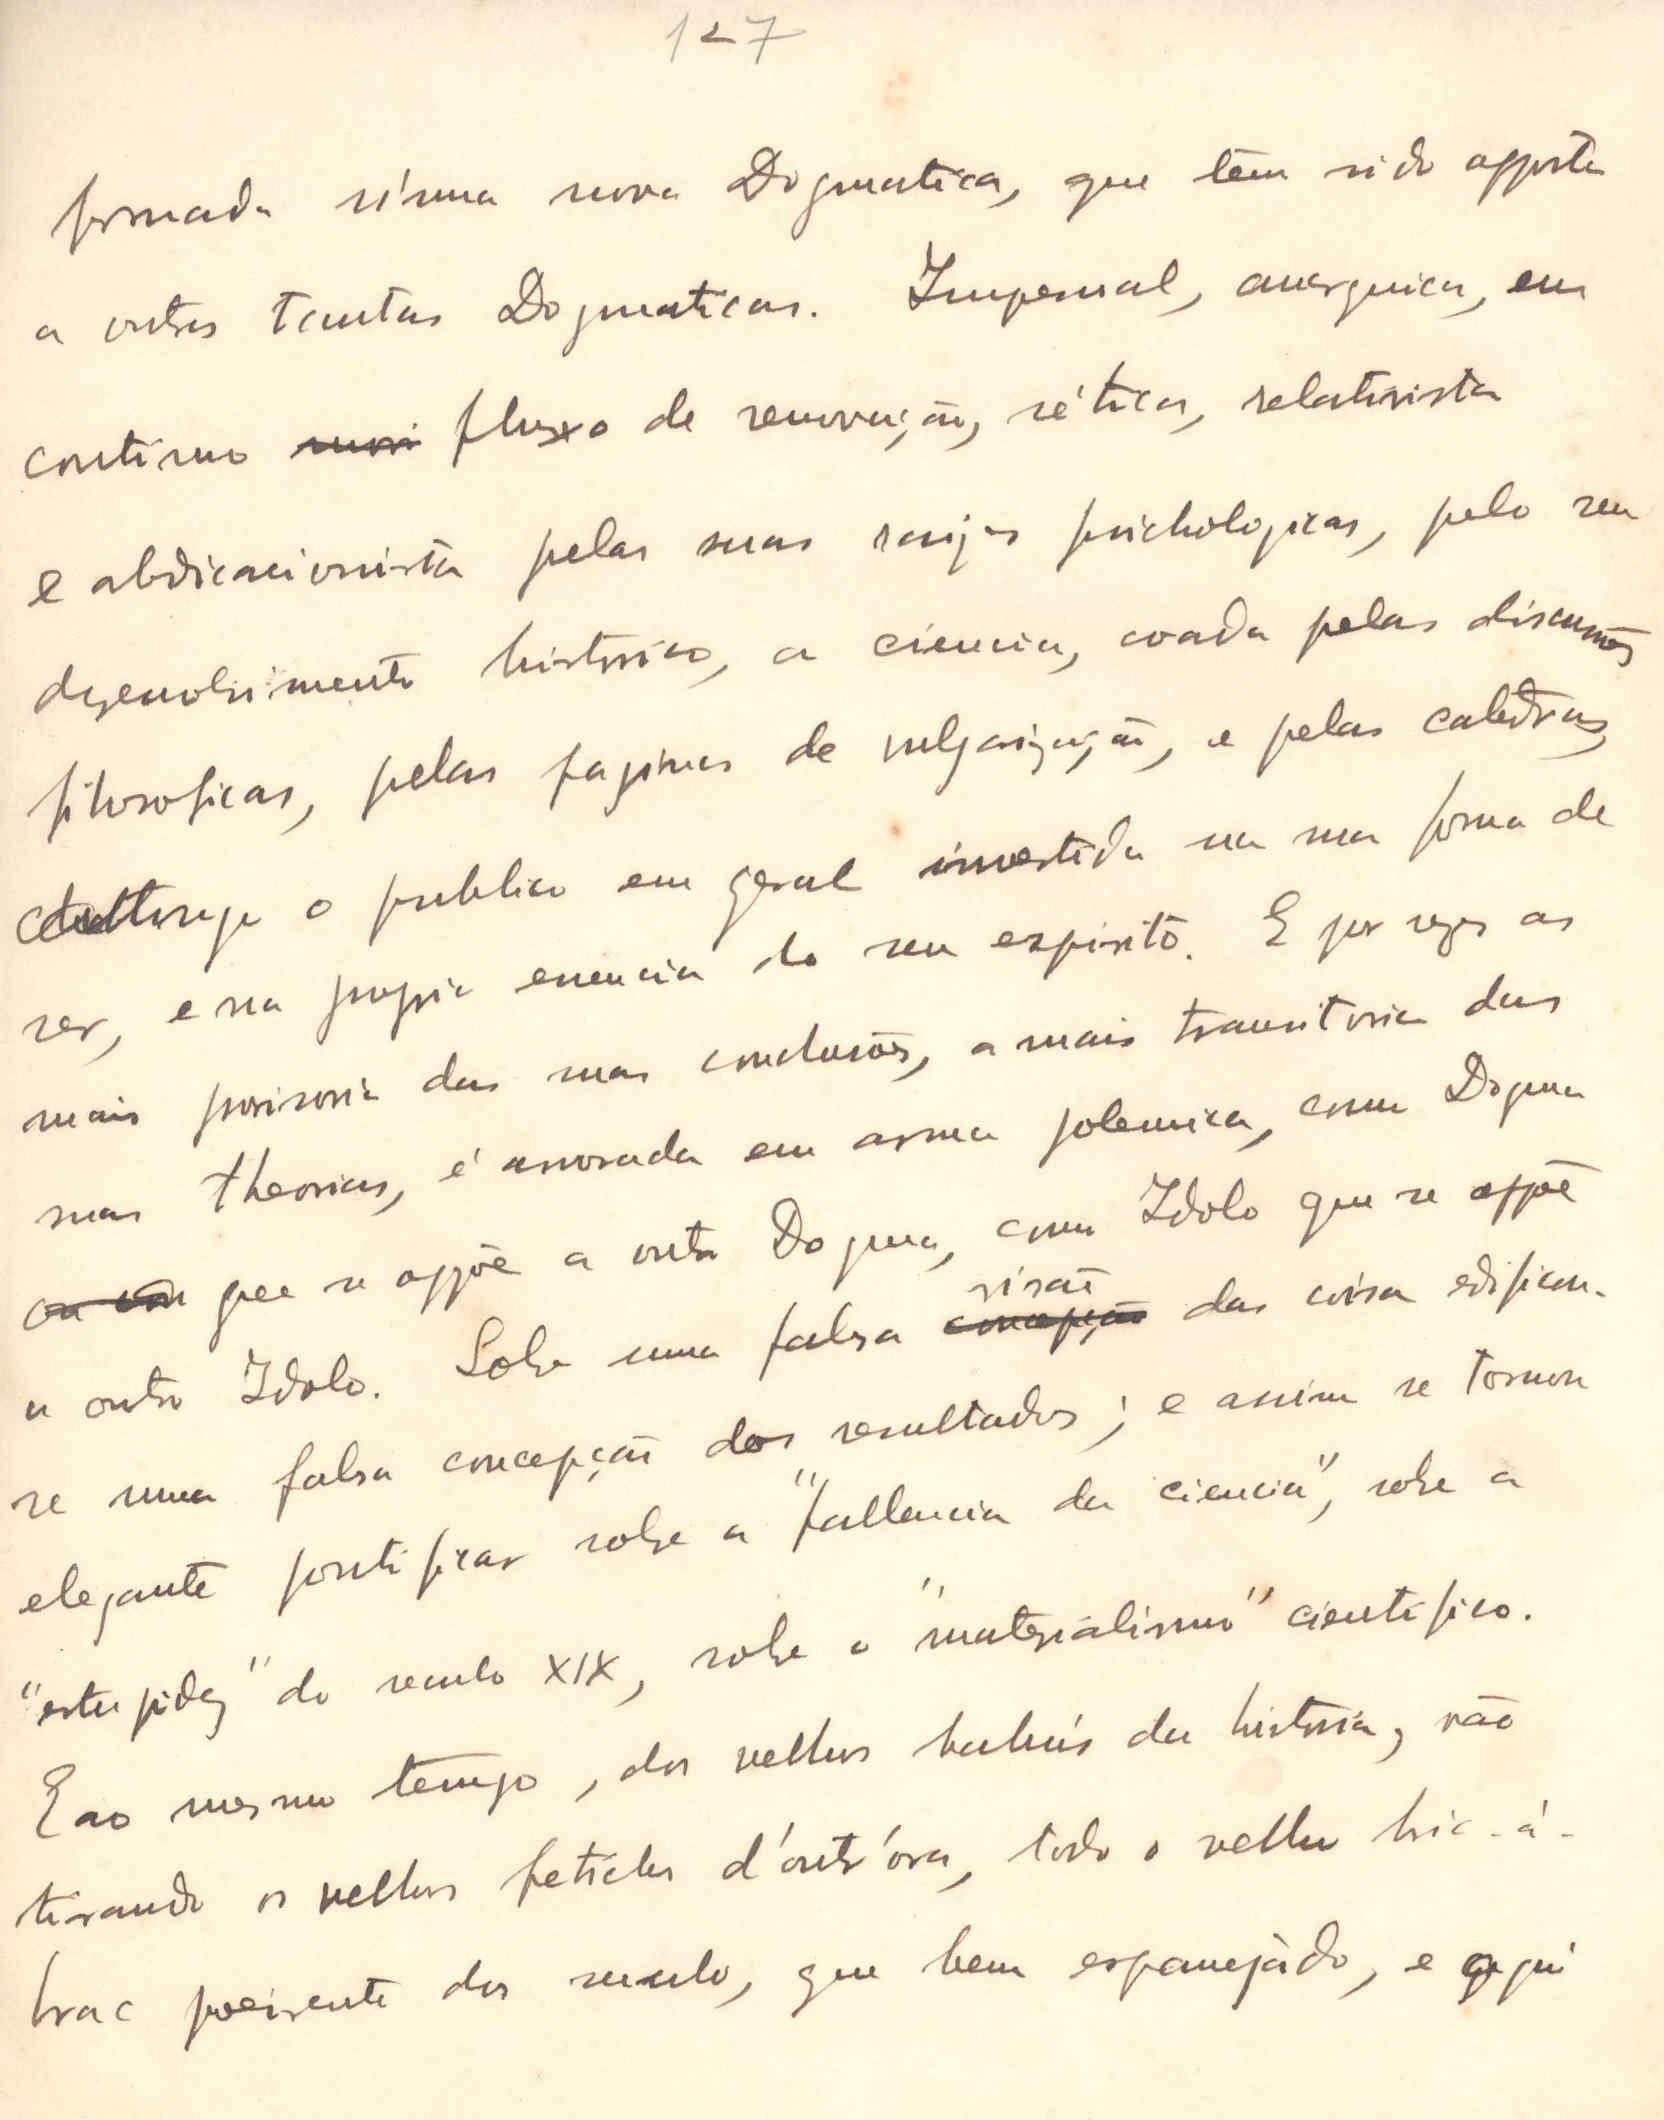 127
formada n'uma nova Dogmatica, que tem sido opposta
a outras tantas Dogmaticas. Impessoal, anarquica, em
continuo fluxo de renovação, cética, relativista
e abdicacionista pelas suas raizes psichologicas, pelo seu
desenvolvimento historico, a ciencia, coada pelas discussões
filosoficas, pelas paginas de vulgarização, e pelas catedras,
o publico em geral invertida na sua forma de
ser, e na propria essencia do seu espirito. E por vezes as
mais provisoria das suas conclusões, a mais transitoria das
suas theorias, é arvorada em arma polemica, como Dogma
que se oppõe a outro Dogma, como Idolo que se oppõe
a outro Idolo. Sobre uma falsa visão das coisa edificou-
se uma falsa concepção dos resultados; e assim se tornou
elegante pontificar sobre a "fallencia da ciencia", sobre a
"estupidez" do seculo XIX, sobre o "materialismo" cientifico.
E ao mesmo tempo, dos velhos bahús da historia, vão
tirando os velhos fetiches d'outr'ora, todo o velho bric-á-
brac poeirento dos seculo, que bem espanejado, e aqui